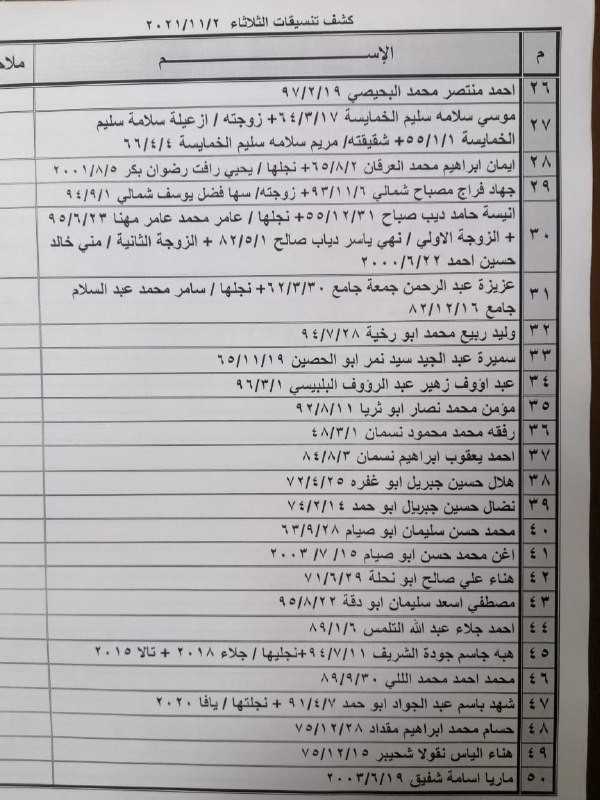 كشف تنسيقات الثلاثاء ٢٠٢١/١١/٢
م الإســـم
٢٦ احمد منتصر محمد البحيصي ٩٧/٢/١٩
٢٧ موسي سلامه سليم الخمايسة ٦٤/٣/١٧+ زوجته / ازعيلة سلامة سليم
الخمايسة ٥٥/١/١+ شقيقته/ مريم سلامه سليم الخمايسة ٦٦/٤/٤
٢٨ ايمان ابراهيم محمد العرقان ٦٥/٨/٢+ نجلها / يحيي رافت رضوان بكر ٢٠٠١/٨/٥
٢٩ جهاد فراج مصباح شمالي ٩٣/١١/٦+ زوجته/ سها فضل يوسف شمالي ٩٤/٩/١
٣٠ انيسة حامد ديب صباح ٥٥/١٢/٣١+ نجلها / عامر محمد عامر مهنا ٩٥/٦/٢٣
+ الزوجة الاولي / نهي ياسر دياب صالح ٨٢/٥/١ + الزوجة الثانية / مني خالد
حسين احمد ٢٠٠٠/٦/٢٢
٣١ عزيزة عبد الرحمن جمعة جامع ٦٢/٣/٣٠+ نجلها / سامر محمد عبد السلام
جامع ٨٢/١٢/١٦
٣٢ وليد ربيع محمد ابو رخية ٩٤/٧/٢٨
٣٣ سميرة عبد الجيد سيد نمر ابو الحصين ٦٥/١١/١٩
٣٤ عبد اؤوف زهير عبد الرؤوف البلبيسي ٩٦/٣/١
٣٥ مؤمن محمد نصار ابو ثريا ٩٢/٨/١١
٣٦ رفقه محمد محمود نسمان ٤٨/٣/١
٣٧ احمد يعقوب ابراهيم نسمان ٨٤/٨/٣
٣٨ هلال حسين جبريل ابو غفره ٧٢/٤/٢٥
٣٩ نضال حسين جبريل ابو حمد ٧٤/٢/١٤
٤٠ محمد حسن سليمان ابو صيام ٦٣/٩/٢٨
٤١ اغن محمد حسن ابو صيام ١٥/ ٧/ ٢٠٠٣
٤٢ هناء علي صالح ابو نحلة ٧١/٦/٢٩
٤٣ مصطفي اسعد سليمان ابو دقة ٩٥/٨/٢٢
٤٤ احمد جلاء عبد الله التلمس ٨٩/١/٦
٤٥ هبه جاسم جودة الشريف ٩٤/٧/١١+نجليها / جلاء ٢٠١٨ + تالا ٢٠١٥
٤٦ محمد احمد محمد اللي ٨٩/٩/٣٠
٤٧ شهد باسم عبد الجواد ابو حمد ٩١/٤/٧ + نجلتها / يافا ٢٠٢٠
٤٨ حسام محمد ابراهيم مقداد ٧٥/١٢/٢٨
٤٩ هناء الياس نقولا شحيبر ٧٥/١٢/١٥
٥٠ ماريا اسامة شفيق ٢٠٠٣/٦/١٩